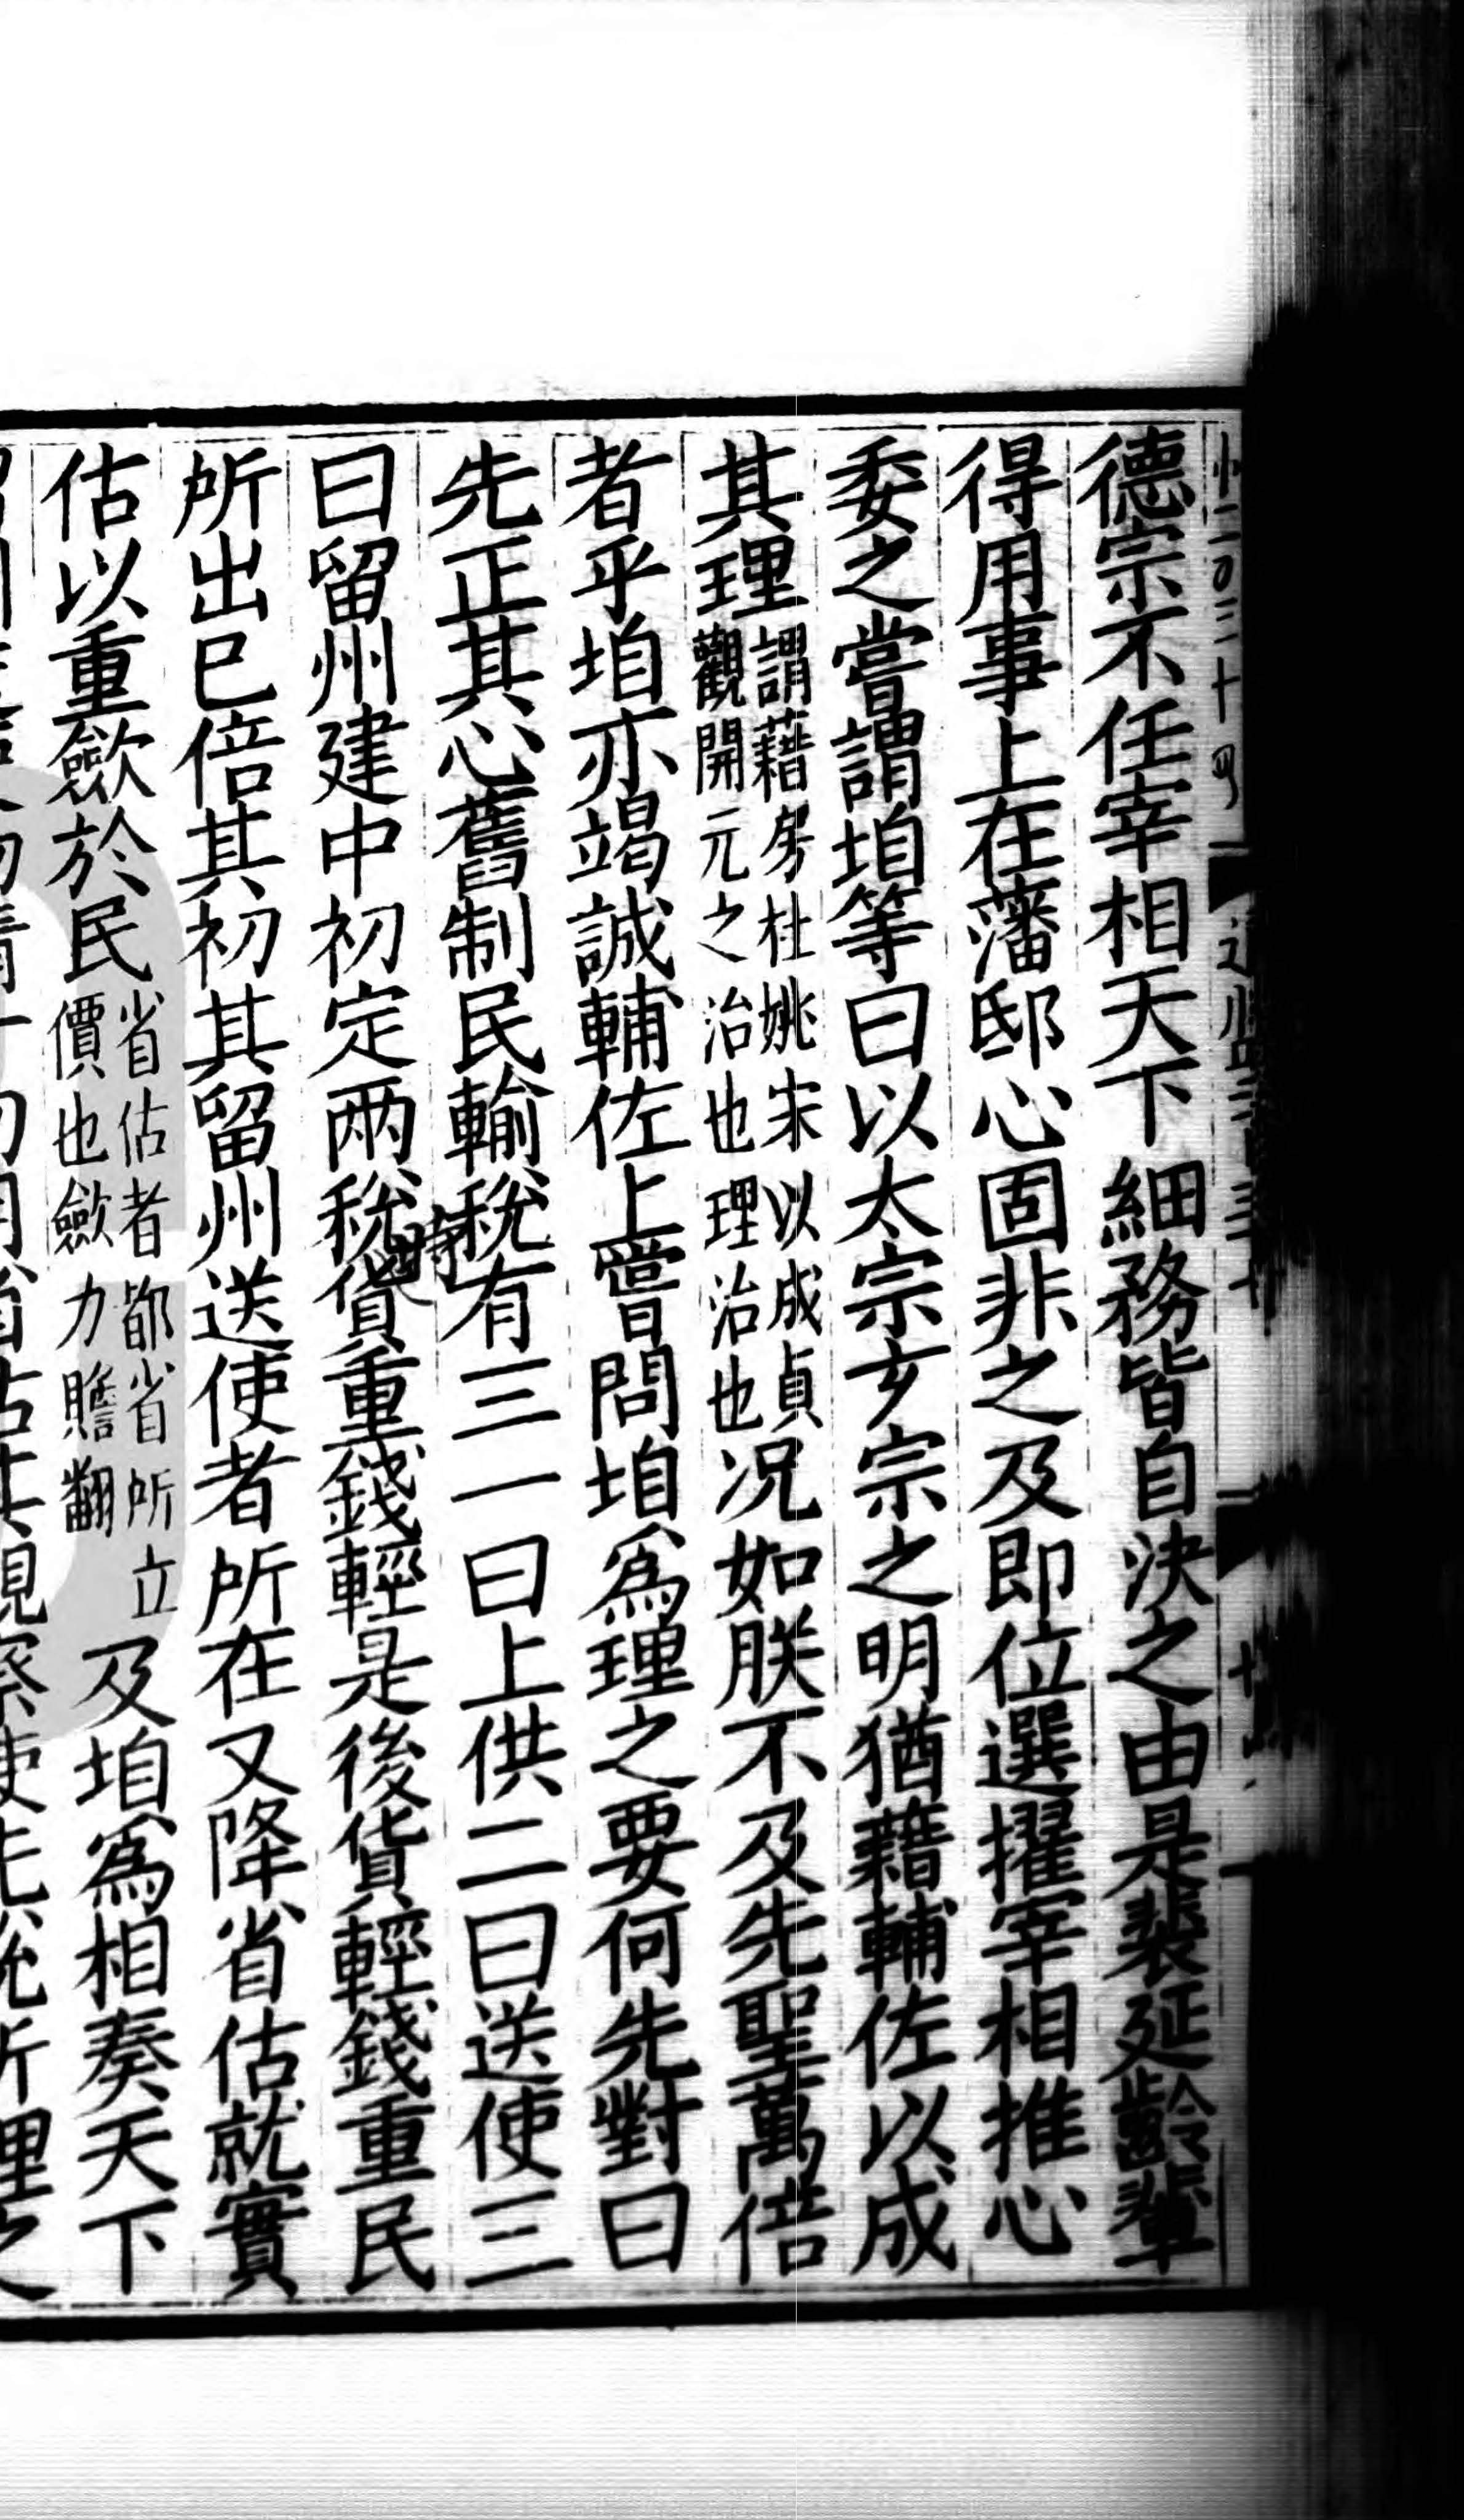 德宗不任宰相天下細務皆自決之由是裴延齡輩
得用事上在藩邸心固非之及即位選擢宰相推心
委之嘗謂垍等曰以太宗玄宗之明猶藉輔佐以成
其理謂藉房杜姚宋以成貞觀開元之治也理治也况如朕不及先聖萬倍
者乎垍亦竭誠輔佐上嘗問垍爲理之要何先對曰
先正其心舊制民輸稅有三一曰上供二曰送使三
曰留州建中初定兩稅時貨重錢輕是後貨輕錢重民
所出已倍其初其留州送使者所在又降省估就實
估以重歛於民省估者都省所立價也歛力贍翻及垍爲相奏天下